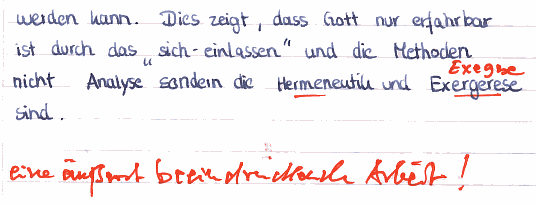 werden kann. Dies zeigt, dass Gott nur erfahrbar
ist durch das „sich-einlassen" und die Methoden
Exegese
nicht Analyse sondern die Hermeneutik und Exergerese
sind.
eine äußerst beeindruckende Arbeit!